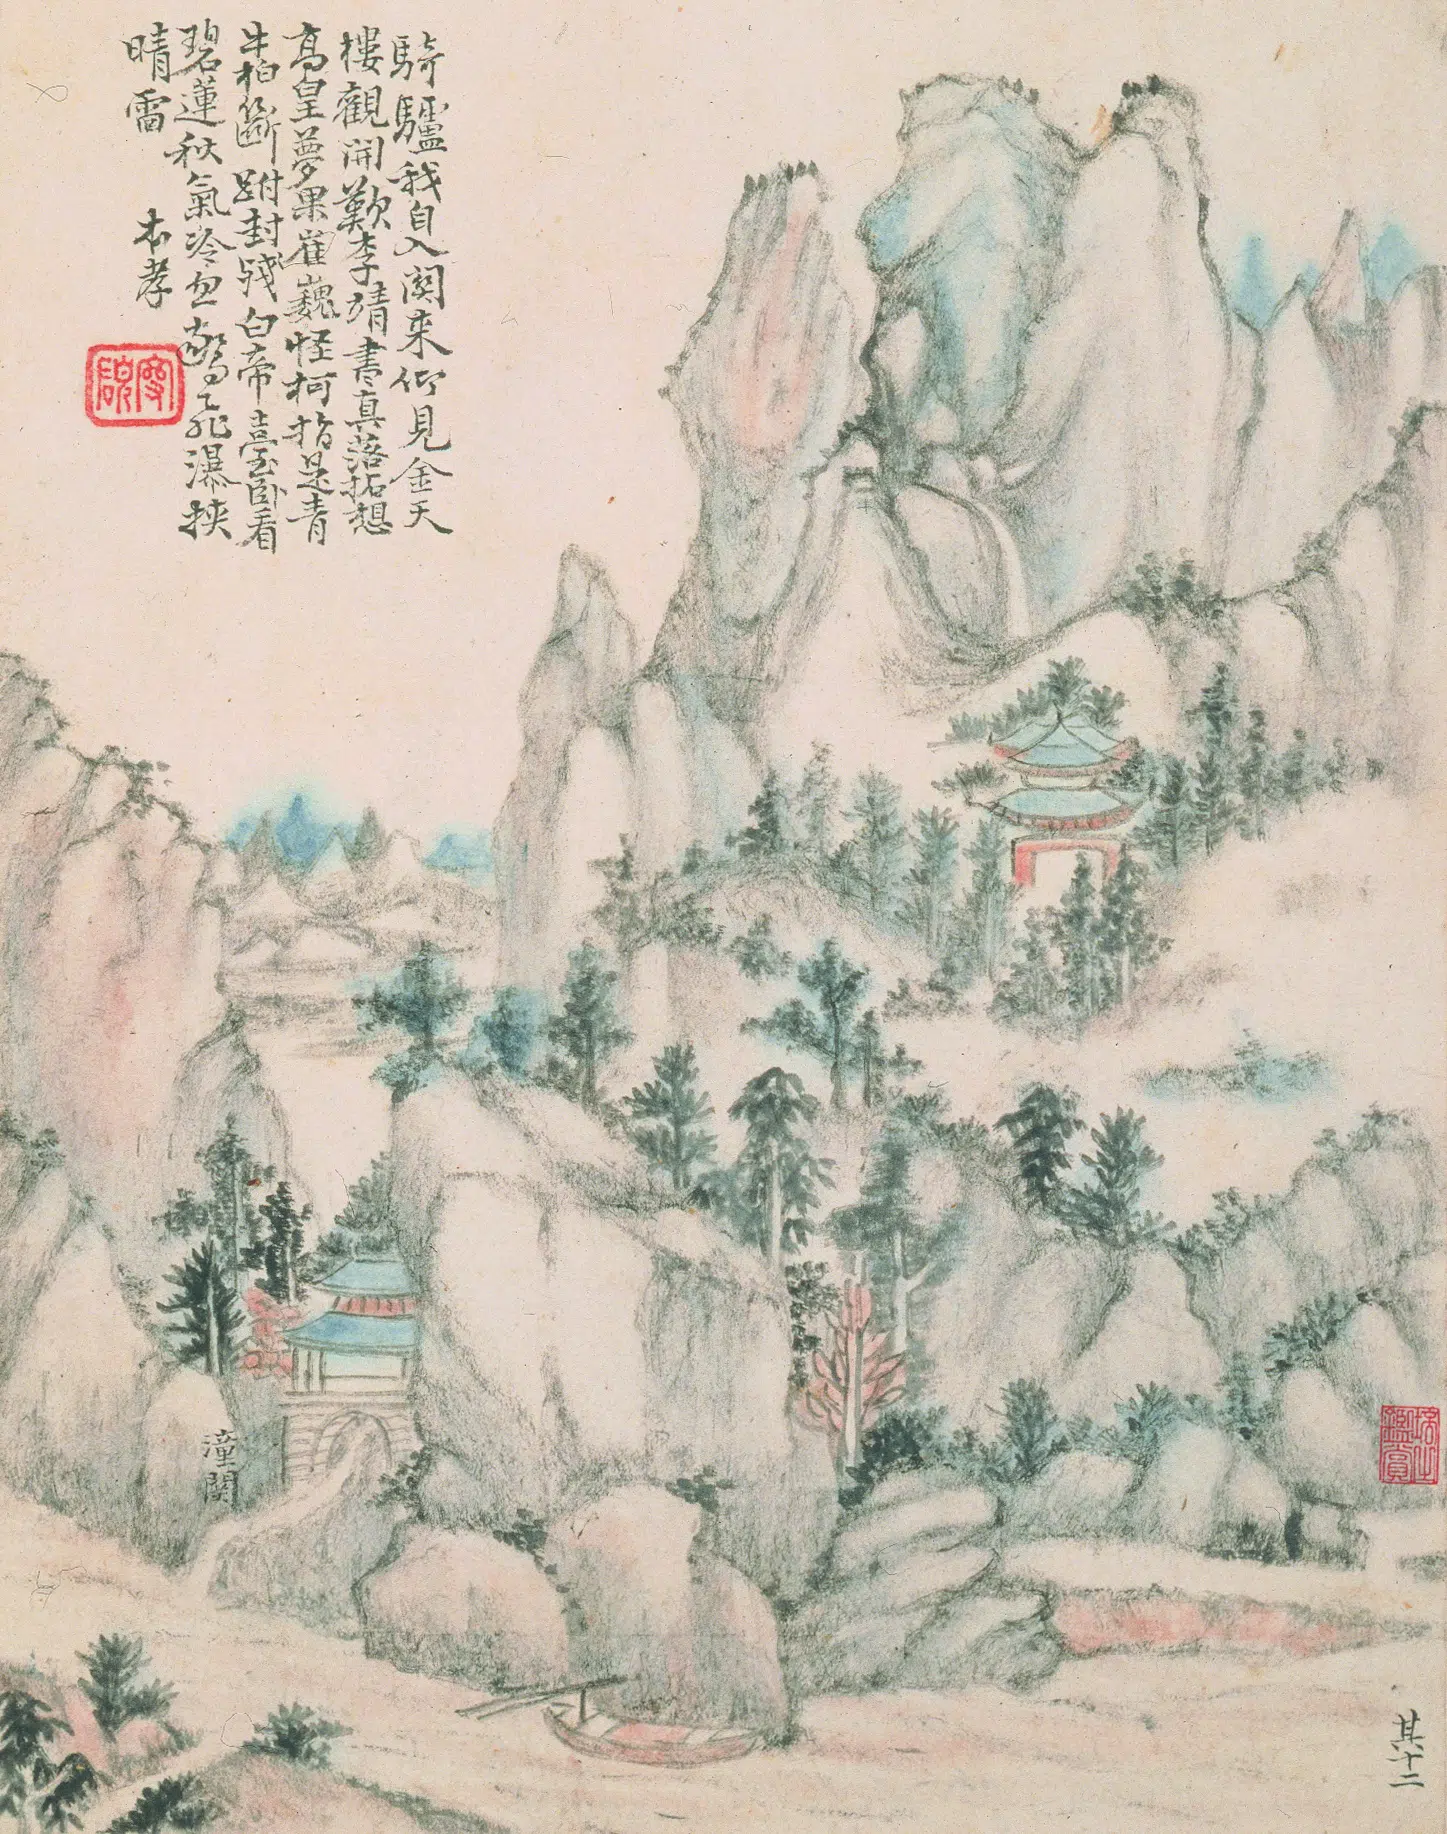 騎驢我自入関来仰見金天
樓觀開歎李靖書真落拓想
高皇夢果崔巍怪柯指是青
牛柏斷跗封殘白帝臺卧看
碧蓮秋氣冷忽驚飛瀑挾
晴雷
本孝
潼関
鑑賞
其十二